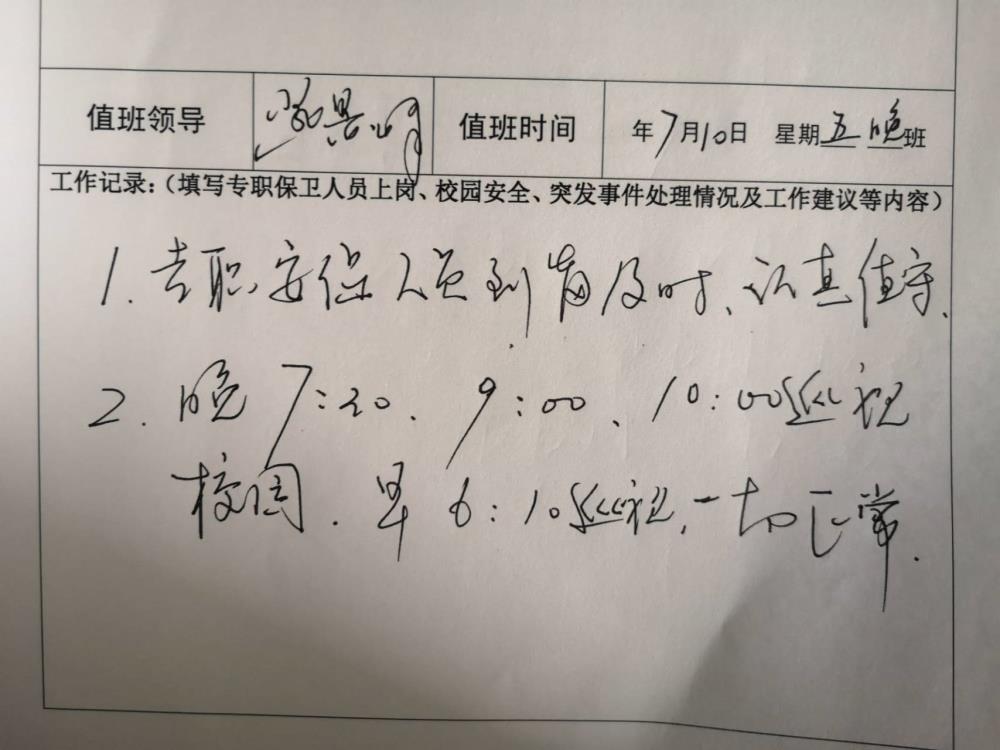 值班领导 值班时间 年7月10日 星期五晚班
工作记录：（填写专职保卫人员上岗、校园安全、突发事件处理情况及工作建议等内容）
1. 专职安保人员到岗及时、认真值守.
2. 晚7:20、9:00、10:00巡视
校园. 早6:10巡视,一切正常.